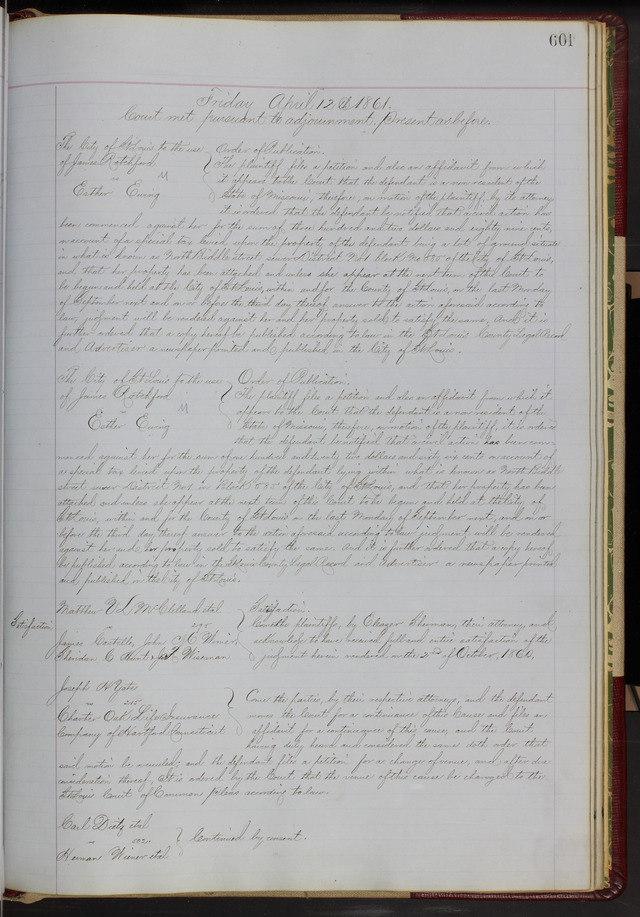 601
Friday April 12th 1861.
Court met pursuant to adjournment. Present as before.
The City of St Louis to the use
of James Ratchford
vs
Esther Ewing
Order of Publication.
The plaintiff files a petition and also an affidavit from which
it appears to the Court that the defendant is a non resident of the
State of Missouri, therefore, on motion of the plaintiff, by its attorney
it is ordered that the defendant be notified that a civil action has
been commenced against her for the sum of three hundred and two dollars and eighty nine cents,
on account of a special tax levied upon the property of the defendant being a lot of ground situate
in what is known as North Biddle Street sewer District No 1 block No 535 of the City of St Louis,
and that her property has been attached and unless she appear at the next term of the Court to
be begun and held at the City of St Louis, within and for the County of St Louis, on the last Monday
of September next and on or before the third day thereof answer to the action aforesaid according to
law, judgment will be rendered against her and her property sold to satisfy the same, And it is
further ordered that a copy hereof be published according to law in the St Louis County Legal Record
and Advertiser a newspaper printed and published in the City of St Louis.
The City of St Louis to the use
of James Ratchford
vs
Esther Ewing
Order of Publication.
The plaintiff files a petition and also an affidavit from which it
appears to the Court that the defendant is a non resident of the
State of Missouri, therefore, on motion of the plaintiff, it is ordered
that the defendant be notified that a civil action has been com-
menced against her for the sum of one hundred and thirty two dollars and sixty six cents on account of
a special tax levied upon the property of the defendant lying within what is known as North Biddle
Street sewer District No 1 in Block 535 of the City of St Louis, and that her property has been
attached and unless she appear at the next term of the Court to be begun and held at the City of
St Louis, within and for the County of St Louis on the last Monday of September next, and on or
before the third day thereof answer to the action aforesaid according to law judgment will be rendered
against her and her property sold to satisfy the same. And it is further ordered that a copy hereof
be published according to law in the St Louis County Legal Record and Advertiser a newspaper printed
and published in the City of St Louis.
Satisfaction
Matthew McClelland etal
James Costello, John H Weiner
Sheridan C Hunt Wiseman
Satisfaction.
Come the plaintiffs, by Eleazer Sherman, their attorney, and
acknowledge to have received full and entire satisfaction of the
judgment herein rendered on the 2nd of October, 1860.
Joseph W Yates
Charter Oak Life Insurance
Company of Hartford Connecticut
Come the parties, by their respective attorneys, and the defendant
moves the Court for a continuance of this Cause and files an
affidavit for a continuance of this cause, and the Court
having duly heard and considered the same doth order that
said motion be overruled; and the defendant files a petition for a change of venue, and after due
consideration thereof, It is ordered by the Court that the venue of this cause be changed to the
St Louis Court of Common Pleas according to law.
Carl Dietz etal
Herman Wiener etal
Continued by consent.